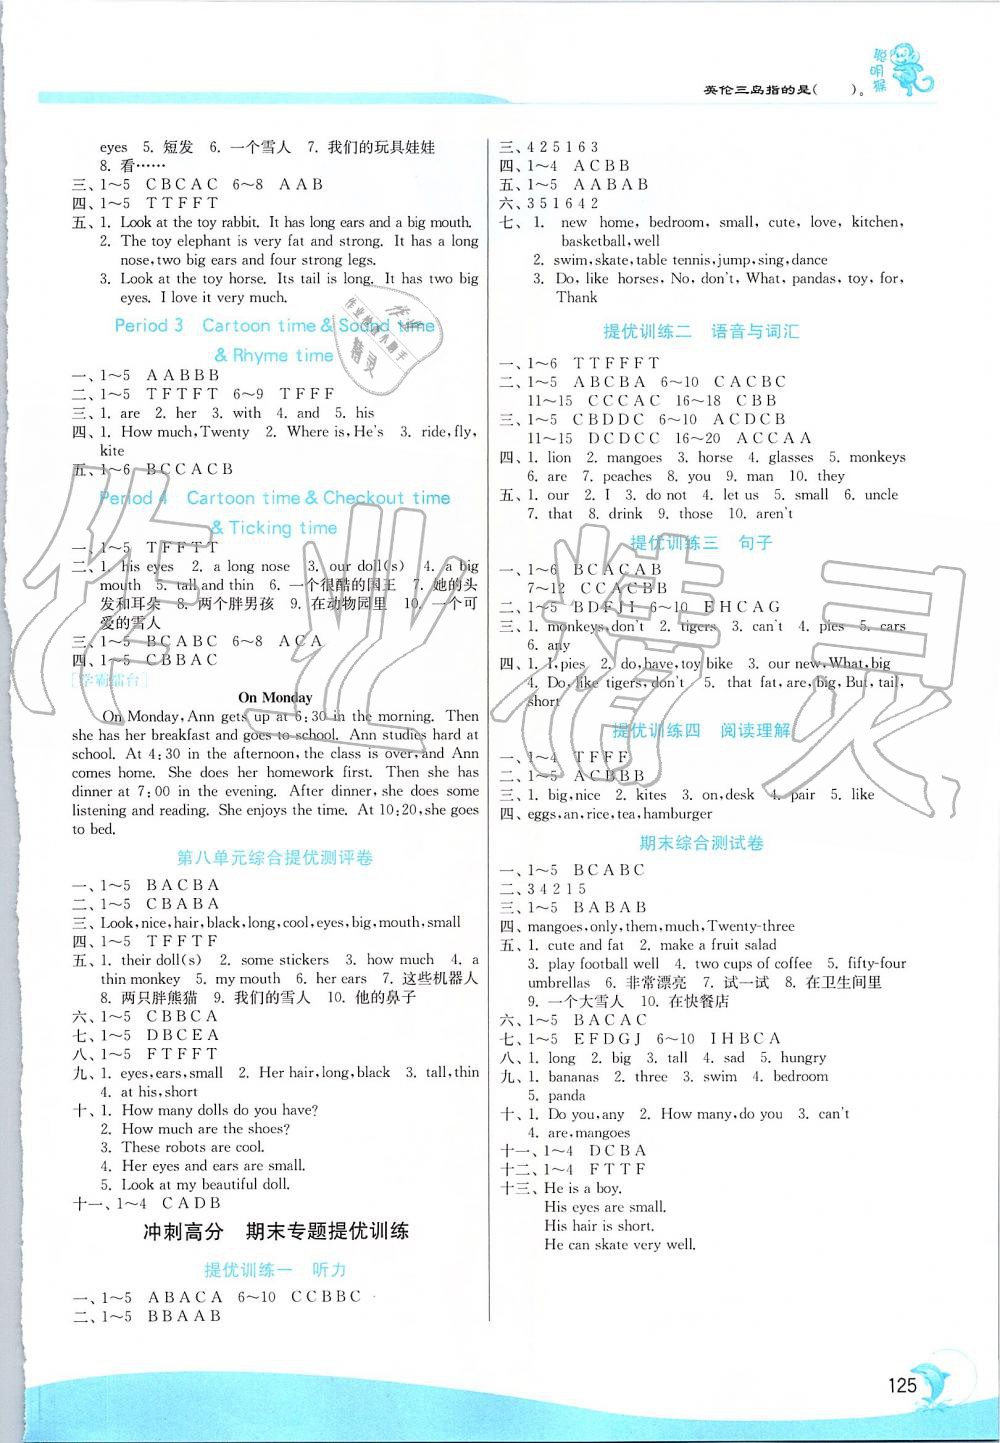 英伦三岛指的是(　　)。
聪明猴
eyes 5. 短发 6. 一个雪人 7. 我们的玩具娃娃
8. 看……
三、1～5 C B C A C 6～8 A A B
四、1～5 T T F F T
五、1. Look at the toy rabbit. It has long ears and a big mouth.
2. The toy elephant is very fat and strong. It has a long
nose, two big ears and four strong legs.
3. Look at the toy horse. Its tail is long. It has two big
eyes. I love it very much.
Period 3 Cartoon time & Sound time
& Rhyme time
一、1～5 A A B B B
二、1～5 T F T F T 6～9 T F F F
三、1. are 2. her 3. with 4. and 5. his
四、1. How much, Twenty 2. Where is, He's 3. ride, fly,
kite
五、1～6 B C C A C B
Period 4 Cartoon time & Checkout time
& Ticking time
一、1～5 T F F T T
二、1. his eyes 2. a long nose 3. our doll(s) 4. a big
mouth 5. tall and thin 6. 一个很酷的国王 7. 她的头
发和耳朵 8. 两个胖男孩 9. 在动物园里 10. 一个可
爱的雪人
三、1～5 B C A B C 6～8 A C A
四、1～5 C B B A C
[学霸擂台]
On Monday
On Monday, Ann gets up at 6:30 in the morning. Then
she has her breakfast and goes to school. Ann studies hard at
school. At 4:30 in the afternoon, the class is over, and Ann
comes home. She does her homework first. Then she has
dinner at 7:00 in the evening. After dinner, she does some
listening and reading. She enjoys the time. At 10:20, she goes
to bed.
第八单元综合提优测评卷
一、1～5 B A C B A
二、1～5 C B A B A
三、Look, nice, hair, black, long, cool, eyes, big, mouth, small
四、1～5 T F F T F
五、1. their doll(s) 2. some stickers 3. how much 4. a
thin monkey 5. my mouth 6. her ears 7. 这些机器人
8. 两只胖熊猫 9. 我们的雪人 10. 他的鼻子
六、1～5 C B B C A
七、1～5 D B C E A
八、1～5 F T F F T
九、1. eyes, ears, small 2. Her hair, long, black 3. tall, thin
4. at his, short
十、1. How many dolls do you have?
2. How much are the shoes?
3. These robots are cool.
4. Her eyes and ears are small.
5. Look at my beautiful doll.
十一、1～4 C A D B
冲刺高分 期末专题提优训练
提优训练一 听力
一、1～5 A B A C A 6～10 C C B B C
二、1～5 B B A A B
三、4 2 5 1 6 3
四、1～4 A C B B
五、1～5 A A B A B
六、3 5 1 6 4 2
七、1. new home, bedroom, small, cute, love, kitchen,
basketball, well
2. swim, skate, table tennis, jump, sing, dance
3. Do, like horses, No, don't, What, pandas, toy, for,
Thank
提优训练二 语音与词汇
一、1～6 T T F F F T
二、1～5 A B C B A 6～10 C A C B C
11～15 C C C A C 16～18 C B B
三、1～5 C B D D C 6～10 A C D C B
11～15 D C D C C 16～20 A C C A A
四、1. lion 2. mangoes 3. horse 4. glasses 5. monkeys
6. are 7. peaches 8. you 9. man 10. they
五、1. our 2. I 3. do not 4. let us 5. small 6. uncle
7. that 8. drink 9. those 10. aren't
提优训练三 句子
一、1～6 B C A C A B
7～12 C C A C B B
二、1～5 B D F J I 6～10 E H C A G
三、1. monkeys, don't 2. tigers 3. can't 4. pies 5. cars
6. any
四、1. I, pies 2. do, have, toy bike 3. our new, What, big
4. Do, like tigers, don't 5. that, are, big, But, tail,
short
提优训练四 阅读理解
一、1～4 T F F F
二、1～5 A C B B B
三、1. big, nice 2. kites 3. on, desk 4. pair 5. like
四、eggs, an, rice, tea, hamburger
期末综合测试卷
一、1～5 B C A B C
二、3 4 2 1 5
三、1～5 B A B A B
四、mangoes, only, them, much, Twenty-three
五、1. cute and fat 2. make a fruit salad
3. play football well 4. two cups of coffee 5. fifty-four
umbrellas 6. 非常漂亮 7. 试一试 8. 在卫生间里
9. 一个大雪人 10. 在快餐店
六、1～5 B A C A C
七、1～5 E F D G J 6～10 I H B C A
八、1. long 2. big 3. tall 4. sad 5. hungry
九、1. bananas 2. three 3. swim 4. bedroom
5. panda
十、1. Do you, any 2. How many, do you 3. can't
4. are, mangoes
十一、1～4 D C B A
十二、1～4 F T T F
十三、He is a boy.
His eyes are small.
His hair is short.
He can skate very well.
125
作业精灵